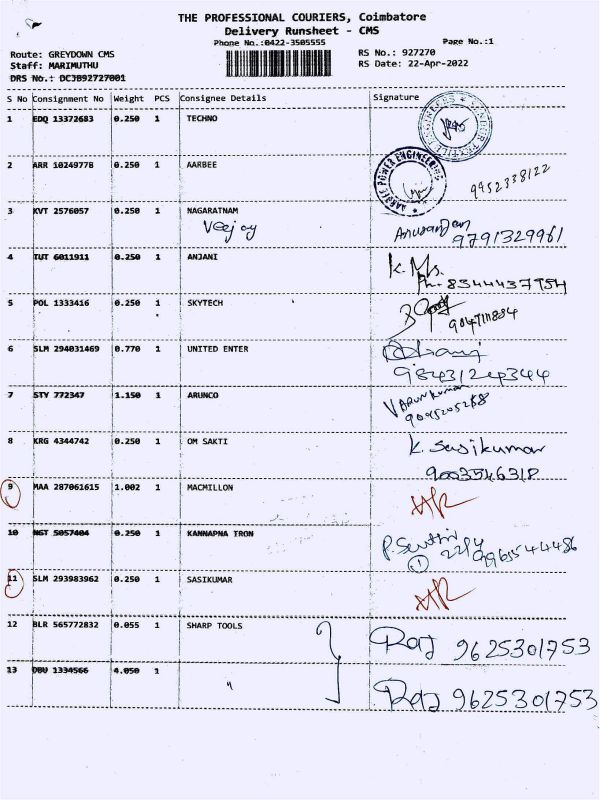 THE PROFESSIONAL COURIERS, Coimbatore
Delivery Runsheet - CMS
Phone No.:0422-3505555
Page No.:1
Route: GREYDOWN CMS
RS No.: 927270
Staff: MARIMUTHU
RS Date: 22-Apr-2022
DRS No.: DCJB92727001
S No Consignment No Weight PCS Consignee Details Signature
1 EDQ 13372683 0.250 1 TECHNO
2 ARR 10249778 0.250 1 AARBEE
AARBEE POWER ENGINEERING
9952338122
3 KVT 2576057 0.250 1 NAGARATNAM
Veejay
9791329961
4 TUT 6011911 0.250 1 ANJANI
K. Ms.
Ph. 8344437754
5 POL 1333416 0.250 1 SKYTECH
6 SLM 294031469 0.770 1 UNITED ENTER
9843124344
7 STY 772347 1.150 1 ARUNCO
V ARUN kumar
8 KRG 4344742 0.250 1 OM SAKTI
K. Sasikumar
9003546318
9 MAA 287061615 1.002 1 MACMILLON
10 NGT 5057404 0.250 1 KANNAPNA TRON
22/4
9965544486
1
11 SLM 293983962 0.250 1 SASIKUMAR
12 BLR 565772832 0.055 1 SHARP TOOLS
Raj 9625301753
13 DBU 1334566 4.050 1 "
Raj 9625301753